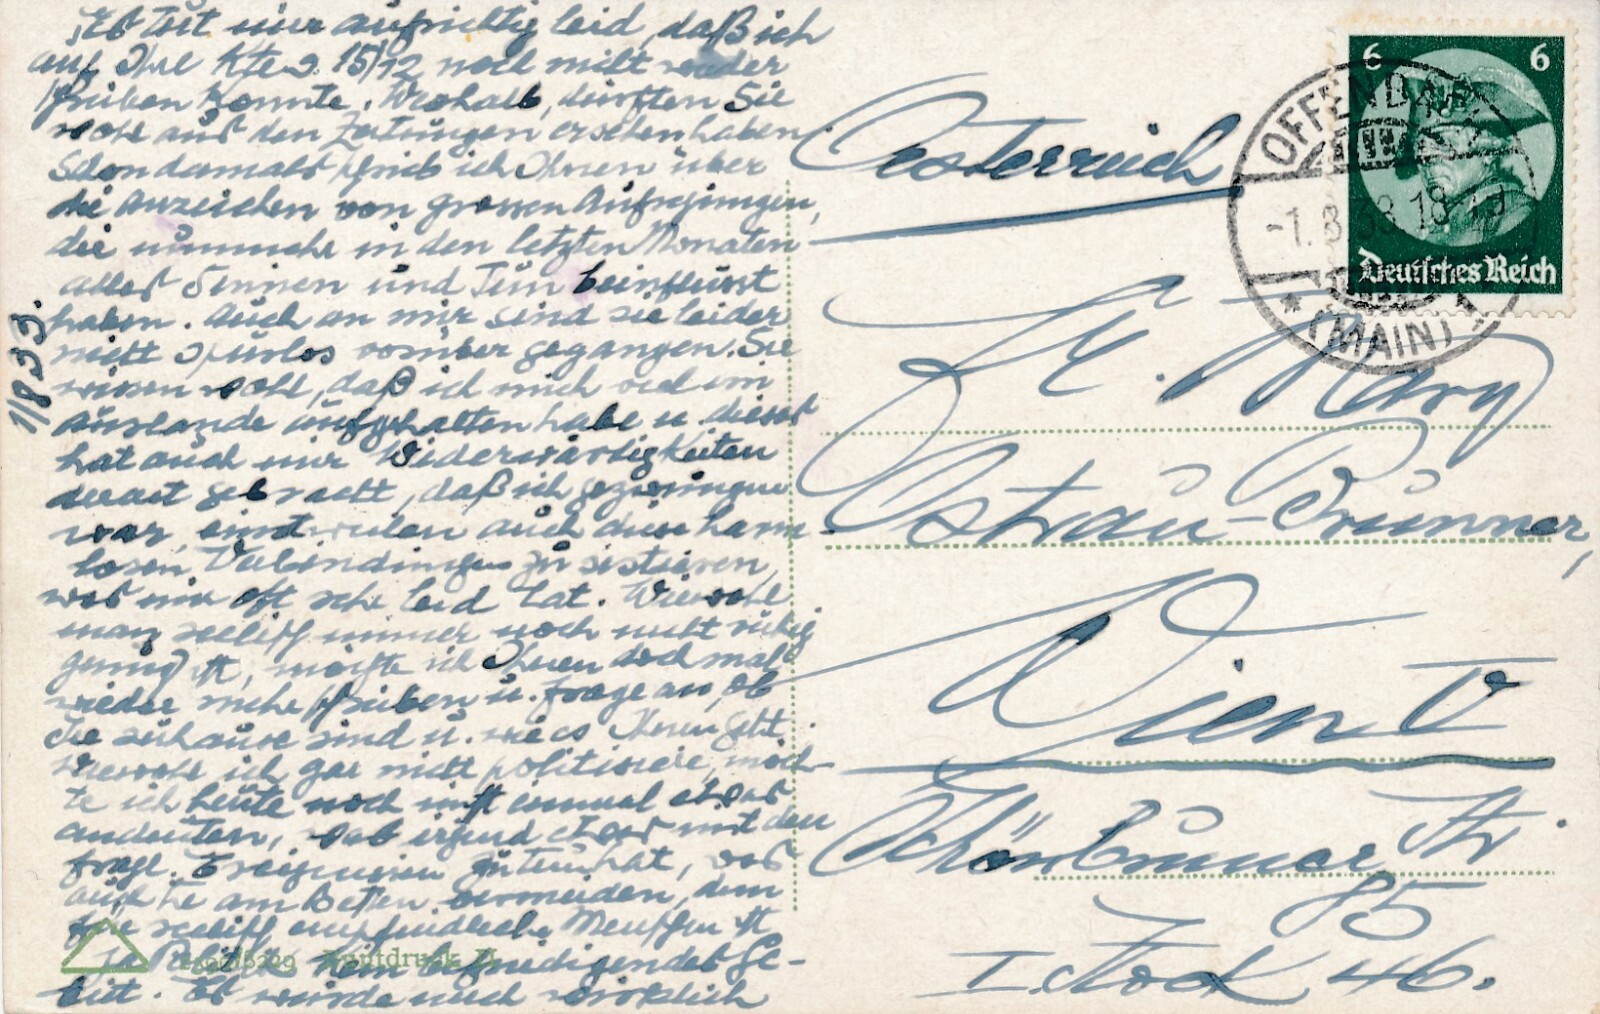 Es tut mir aufrichtig leid, daß ich
auf Ihre Kte v. 15/12 noch nicht wieder
schreiben konnte. Weshalb, dürften Sie
wohl aus den Zeitungen ersehen haben.
Schon damals schrieb ich Ihnen über
die Anzeichen von grossen Aufregungen,
die nunmehr in den letzten Monaten
alles Sinnen und Tun beeinflusst
haben. Auch an mir sind sie leider
nicht spurlos vorüber gegangen. Sie
wissen wohl, daß ich mich viel im
Auslande aufgehalten habe u. dieses
hat auch mir Widerwärtigkeiten
derart gebracht, daß ich gezwungen
war, einstweilen auch diese harm-
losen Verbindungen zu sistieren,
was mir oft sehr leid tat. Wiewohl
man seelisch immer noch nicht ruhig
genug ist, möchte ich Ihnen doch mal
wieder mehr schreiben u. frage an, ob
Sie zuhause sind u. wie es Ihnen geht.
Wiewohl ich gar nicht politisiere, möch-
te ich heute noch nicht einmal etwas
andeuten, was irgend etwas mit den
frage. Ereignissen zu tun hat, das
auch Sie am Besten vermeiden, denn
für seelisch empfindliche Menschen ist
ja Politik kein befriedigendes Ge-
biet. Es würde mich wirklich
1/8 33.
Oesterreich
6 6
Deutsches Reich
OFFENBACH
-1.8.33.18-19
* (MAIN)
Mary
Ostrau-Brunner,
Wien V
Schönbrunner Str.
85
I. Stock 46.